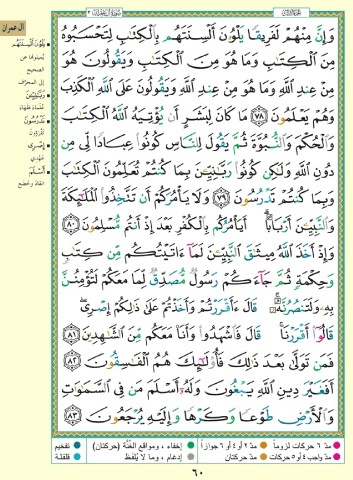 الجزء الثالث
سورة آل عمران ٣
آل عمران
وَإِنَّ مِنْهُمْ لَفَرِيقًا يَلْوُۥنَ أَلْسِنَتَهُم بِٱلْكِتَٰبِ لِتَحْسَبُوهُ
مِنَ ٱلْكِتَٰبِ وَمَا هُوَ مِنَ ٱلْكِتَٰبِ وَيَقُولُونَ هُوَ
مِنْ عِندِ ٱللَّهِ وَمَا هُوَ مِنْ عِندِ ٱللَّهِ وَيَقُولُونَ عَلَى ٱللَّهِ ٱلْكَذِبَ
وَهُمْ يَعْلَمُونَ ﴿٧٨﴾ مَا كَانَ لِبَشَرٍ أَن يُؤْتِيَهُ ٱللَّهُ ٱلْكِتَٰبَ
وَٱلْحُكْمَ وَٱلنُّبُوَّةَ ثُمَّ يَقُولَ لِلنَّاسِ كُونُوا۟ عِبَادًا لِّى مِن
دُونِ ٱللَّهِ وَلَٰكِن كُونُوا۟ رَبَّٰنِيِّۦنَ بِمَا كُنتُمْ تُعَلِّمُونَ ٱلْكِتَٰبَ
وَبِمَا كُنتُمْ تَدْرُسُونَ ﴿٧٩﴾ وَلَا يَأْمُرَكُمْ أَن تَتَّخِذُوا۟ ٱلْمَلَٰٓئِكَةَ
وَٱلنَّبِيِّۦنَ أَرْبَابًا ۗ أَيَأْمُرُكُم بِٱلْكُفْرِ بَعْدَ إِذْ أَنتُم مُّسْلِمُونَ ﴿٨٠﴾
وَإِذْ أَخَذَ ٱللَّهُ مِيثَٰقَ ٱلنَّبِيِّۦنَ لَمَآ ءَاتَيْتُكُم مِّن كِتَٰبٍ
وَحِكْمَةٍ ثُمَّ جَآءَكُمْ رَسُولٌ مُّصَدِّقٌ لِّمَا مَعَكُمْ لَتُؤْمِنُنَّ
بِهِۦ وَلَتَنصُرُنَّهُۥ ۚ قَالَ ءَأَقْرَرْتُمْ وَأَخَذْتُمْ عَلَىٰ ذَٰلِكُمْ إِصْرِى ۖ
قَالُوٓا۟ أَقْرَرْنَا ۚ قَالَ فَٱشْهَدُوا۟ وَأَنَا۠ مَعَكُم مِّنَ ٱلشَّٰهِدِينَ ﴿٨١﴾
فَمَن تَوَلَّىٰ بَعْدَ ذَٰلِكَ فَأُو۟لَٰٓئِكَ هُمُ ٱلْفَٰسِقُونَ ﴿٨٢﴾
أَفَغَيْرَ دِينِ ٱللَّهِ يَبْغُونَ وَلَهُۥٓ أَسْلَمَ مَن فِى ٱلسَّمَٰوَٰتِ
وَٱلْأَرْضِ طَوْعًا وَكَرْهًا وَإِلَيْهِ يُرْجَعُونَ ﴿٨٣﴾
يلون ألسنتهم
يميلونها عن
الصحيح
إلى المحرف
ربانيين
علماء فقهاء
تدرسون
تقرؤون
إصري
عهدي
أسلم
انقاد وخضع
مد ٦ حركات لزوماً
مد ٢ أو ٤ أو ٦ جوازاً
إخفاء، ومواقع الغنة (حركتان)
تفخيم
مد واجب ٤ أو ٥ حركات
مد حركتان
إدغام، وما لا يلفظ
قلقلة
٦٠